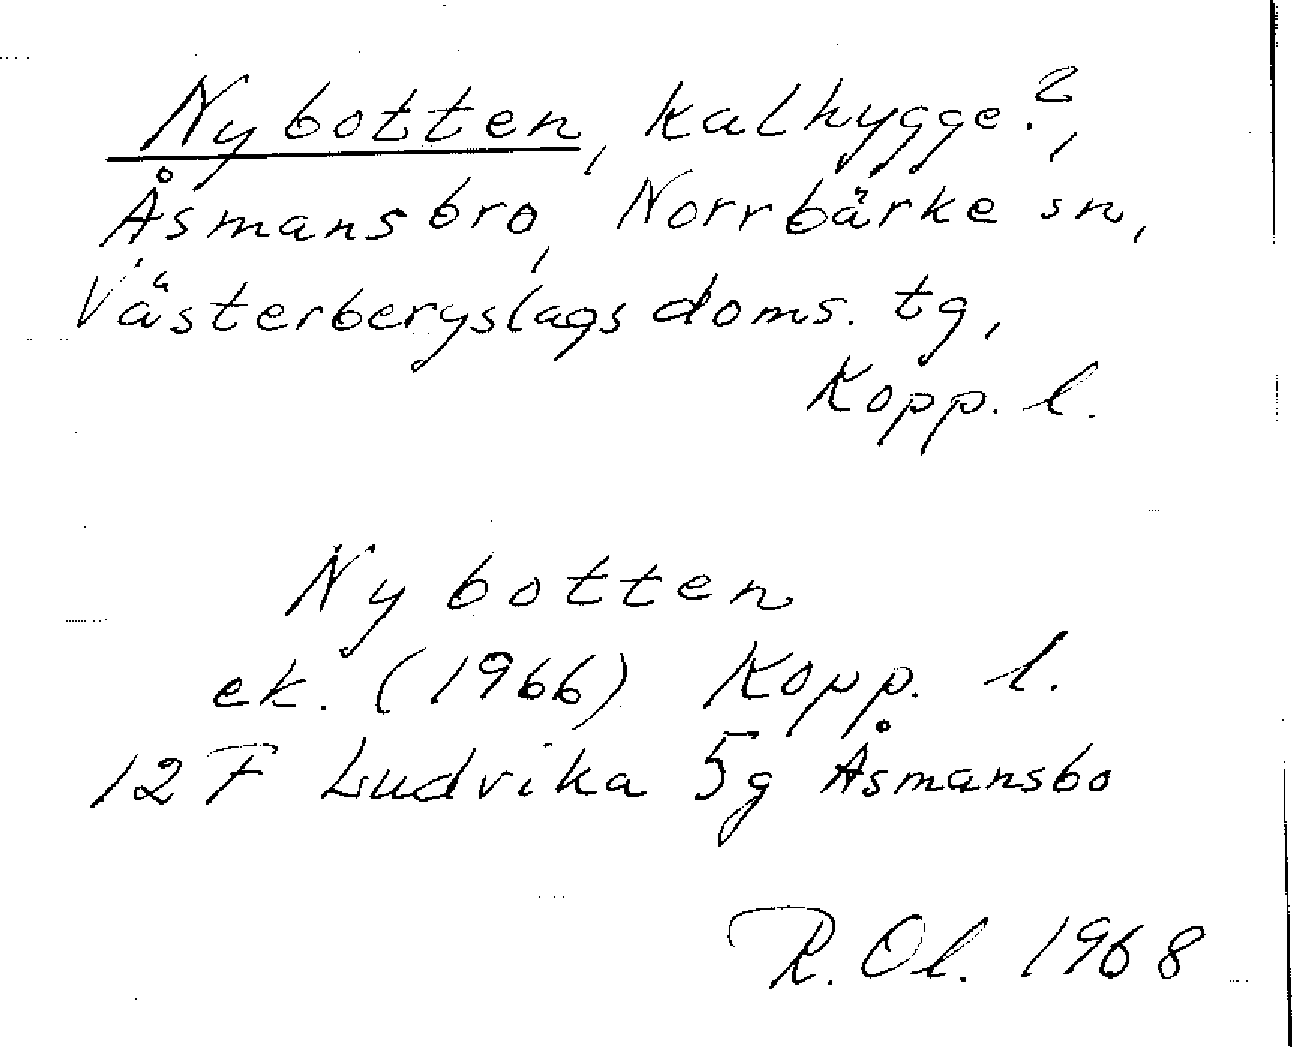 Nybotten, kalhygge?,
Åsmansbro, Norrbärke sn,
Västerbergslags doms. tg,
Kopp. l.
Nybotten
ek. (1966) Kopp. l.
12 F Ludvika 5g Åsmansbo
R. Ol. 1968